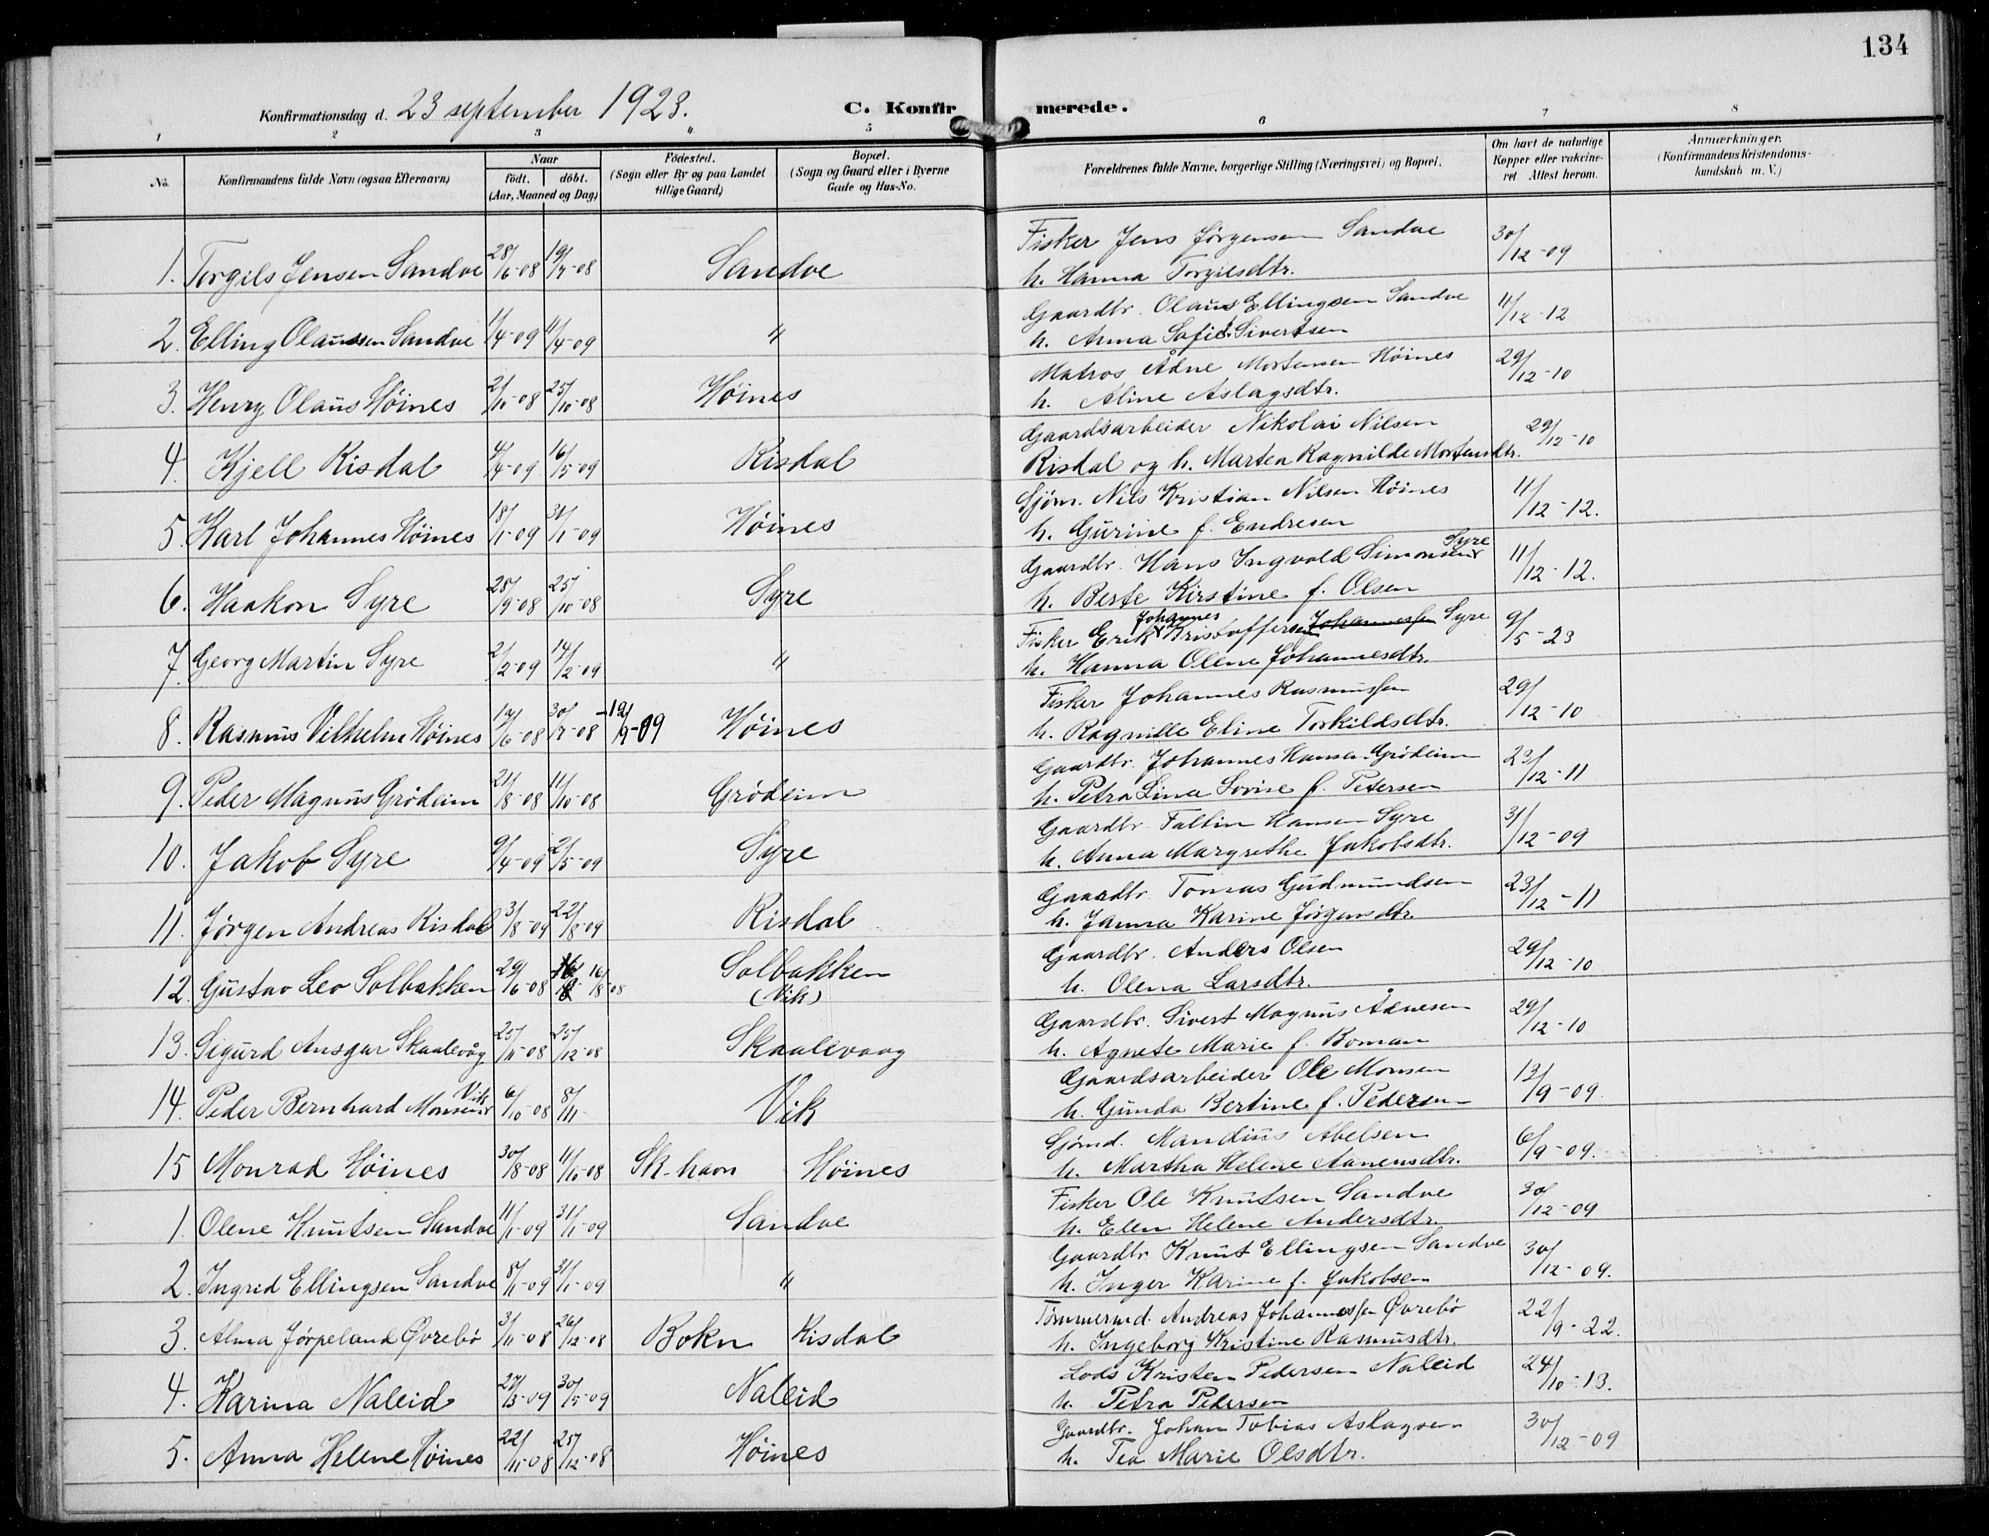 134
Konfirmationsdag d. 23 september 1923. C. Konfirmerede.
1 2 3 5 6 7 8
No. Konfirmandens fulde Navn (ogsaa Efternavn) Naar født. døbt. (Aar, Maaned og Dag) Fødested. (Sogn eller By og paa Landet tillige Gaard) Bopæl. (Sogn og Gaard eller i Byerne Gade og Hus-No. Forældrenes fulde Navne, borgerlige Stilling (Næringsvei) og Bopæl. Om havt de naturlige Kopper eller vakcineret. Attest herom. Anmærkninger. (Konfirmandens Kristendomskundskab m. V.)
1. Torgils Jensen Sandve 28/6-08 19/7-08 Sandve Fisker Jens Jørgensen Sandve 30/12-09
h. Hanna Torgilsdtr.
2. Elling Olaussen Sandve 1/4-09 11/4-09 " Gaardbr. Olaus Ellingsen Sandve 11/12-12
h. Anna Sofie Sivertsen
3. Henry Olaus Høines 2/10-08 25/10-08 Høines Matros Ådne Mortensen Høines 29/12-10
h. Aline Aslagsdtr.
4. Kjell Risdal 4/4-09 16/5-09 Risdal Gaardsarbeider Nikolai Nilsen 29/12-10
Risdal og h. Marten Ragnilde Mortensdtr.
5. Karl Johannes Høines 18/1-09 31/1-09 Høines Sjøm. Nils Kristian Nilsen Høines 11/12-12.
h. Gurine f. Endresen
6. Haakon Syre 28/9-08 25/10-08 Syre Gaardbr. Hans Ingvald Simonsen Syre 11/12-12.
h. Berte Kirstine f. Olsen
7. Georg Martin Syre 2/2-09 14/2-09 " Fisker Erik Johannes Kristoffersen Johannessen Syre 9/5-23
h. Hanna Olene Johannesdtr.
8. Rasmus Vilhelm Høines 17/6-08 30/7-08 -12/9-09 Høines Fisker Johannes Rasmussen 29/12-10
h. Ragnille Eline Torkildsdtr.
9. Peder Magnus Grødeim 21/8-08 11/10-08 Grødeim Gaardbr. Johannes Hansen Grødeim 23/12-11
h. Petra Lina Lovise f. Petersen
10. Jakob Syre 9/4-09 2/5-09 Syre Gaardbr. Faltin Hansen Syre 31/12-09
h. Anna Margrethe Jakobsdtr.
11. Jørgen Andreas Risdal 3/8-09 22/8-09 Risdal Gaardbr. Tomas Gudmundsen 23/12-11
h. Janna Karine Jørgensdtr.
12. Gustav Leo Solbakken 29/6-08 16/8-08 Solbakken (Vik) Gaardbr. Anders Olsen 29/12-10
h. Olena Larsdtr.
13. Sigurd Ansgar Skaalevåg 25/11-08 25/12-08 Skaalevaag Gaardbr. Sivert Magnus Ådnesen 29/12-10
h. Agnete Marie f. Boman
14. Peder Bernhard Monsen Vik 6/10-08 8/11 Vik Gaardsarbeider Ole Monsen 13/9-09.
h. Gunda Bertine f. Pedersen
15 Monrad Høines 30/8-08 11/10-08 Sk-havn Høines Sjømd. Mandius Abelsen 6/9-09.
h. Martha Helene Aanensdtr.
1. Olene Knutsen Sandve 11/1-09 31/1-09 Sandve Fisker Ole Knutsen Sandve 30/12-09
h. Elen Helene Andersdtr.
2. Ingrid Ellingsen Sandve 8/1-09 31/1-09 " Gaardbr Knut Ellingsen Sandve 30/12-09.
h. Inger Karine f. Jakobsen
3. Alma Jørpeland Øvrebø 3/11-08 26/12-08 Bokn Risdal Tømmermd. Andreas Johannessen Øvrebø 22/9-22.
h. Ingeborg Kristine Rasmusdtr.
4. Karina Naleid 27/3-09 30/5-09 Naleid Lods Kristen Pedersen Naleid 24/10-13.
h. Petra Pedersen
5. Anna Helene Høines 22/11-08 25/12-08 Høines Gaardbr. Johan Tobias Aslagsen 30/12-09
h. Tea Marie Olsdtr.